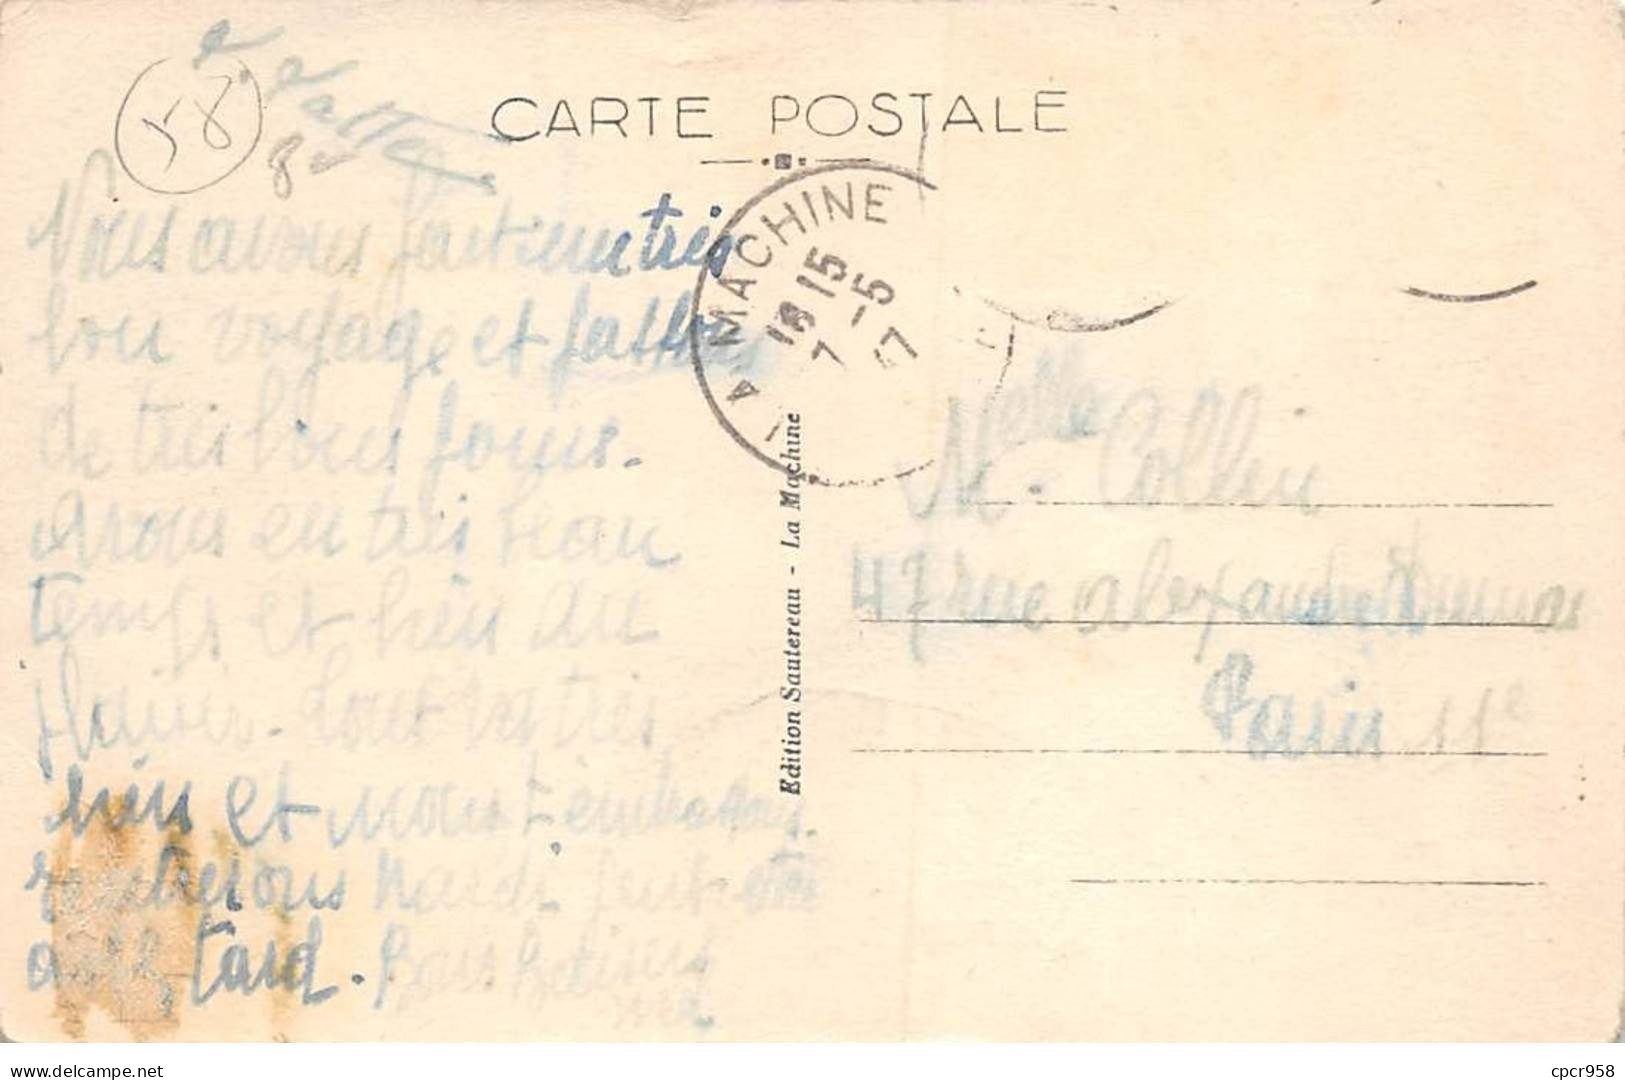 58
CARTE POSTALE
Nous avons fait un très
bon voyage et
de très bons jours.
avons eu très beau
temps et bien du
plaisir. tout
bien et nous t'embrassons.
rentrerons Mardi peut être
tard. Bons baisers
LA MACHINE
18 15
7 -5
47
Edition Sautereau - La Machine
Melle Collin
47 rue alexandre Dumas
Paris 11e
https://www.delcampe.net
cpcr958